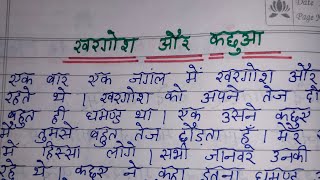 Date
Page N
खरगोश और कछुआ
एक बार एक जगंल में खरगोश और
रहते थे । खरगोश को अपने तेज दौ
बहुत ही घमण्ड था । एक उसने कछुए
में तुमसे बहुत तेज दौड़ता हूँ । मेरे स
में हिस्सा लोगे । सभी जानवर उनकी
रहे थे । कछुए ने कहा इतना घमण्ड